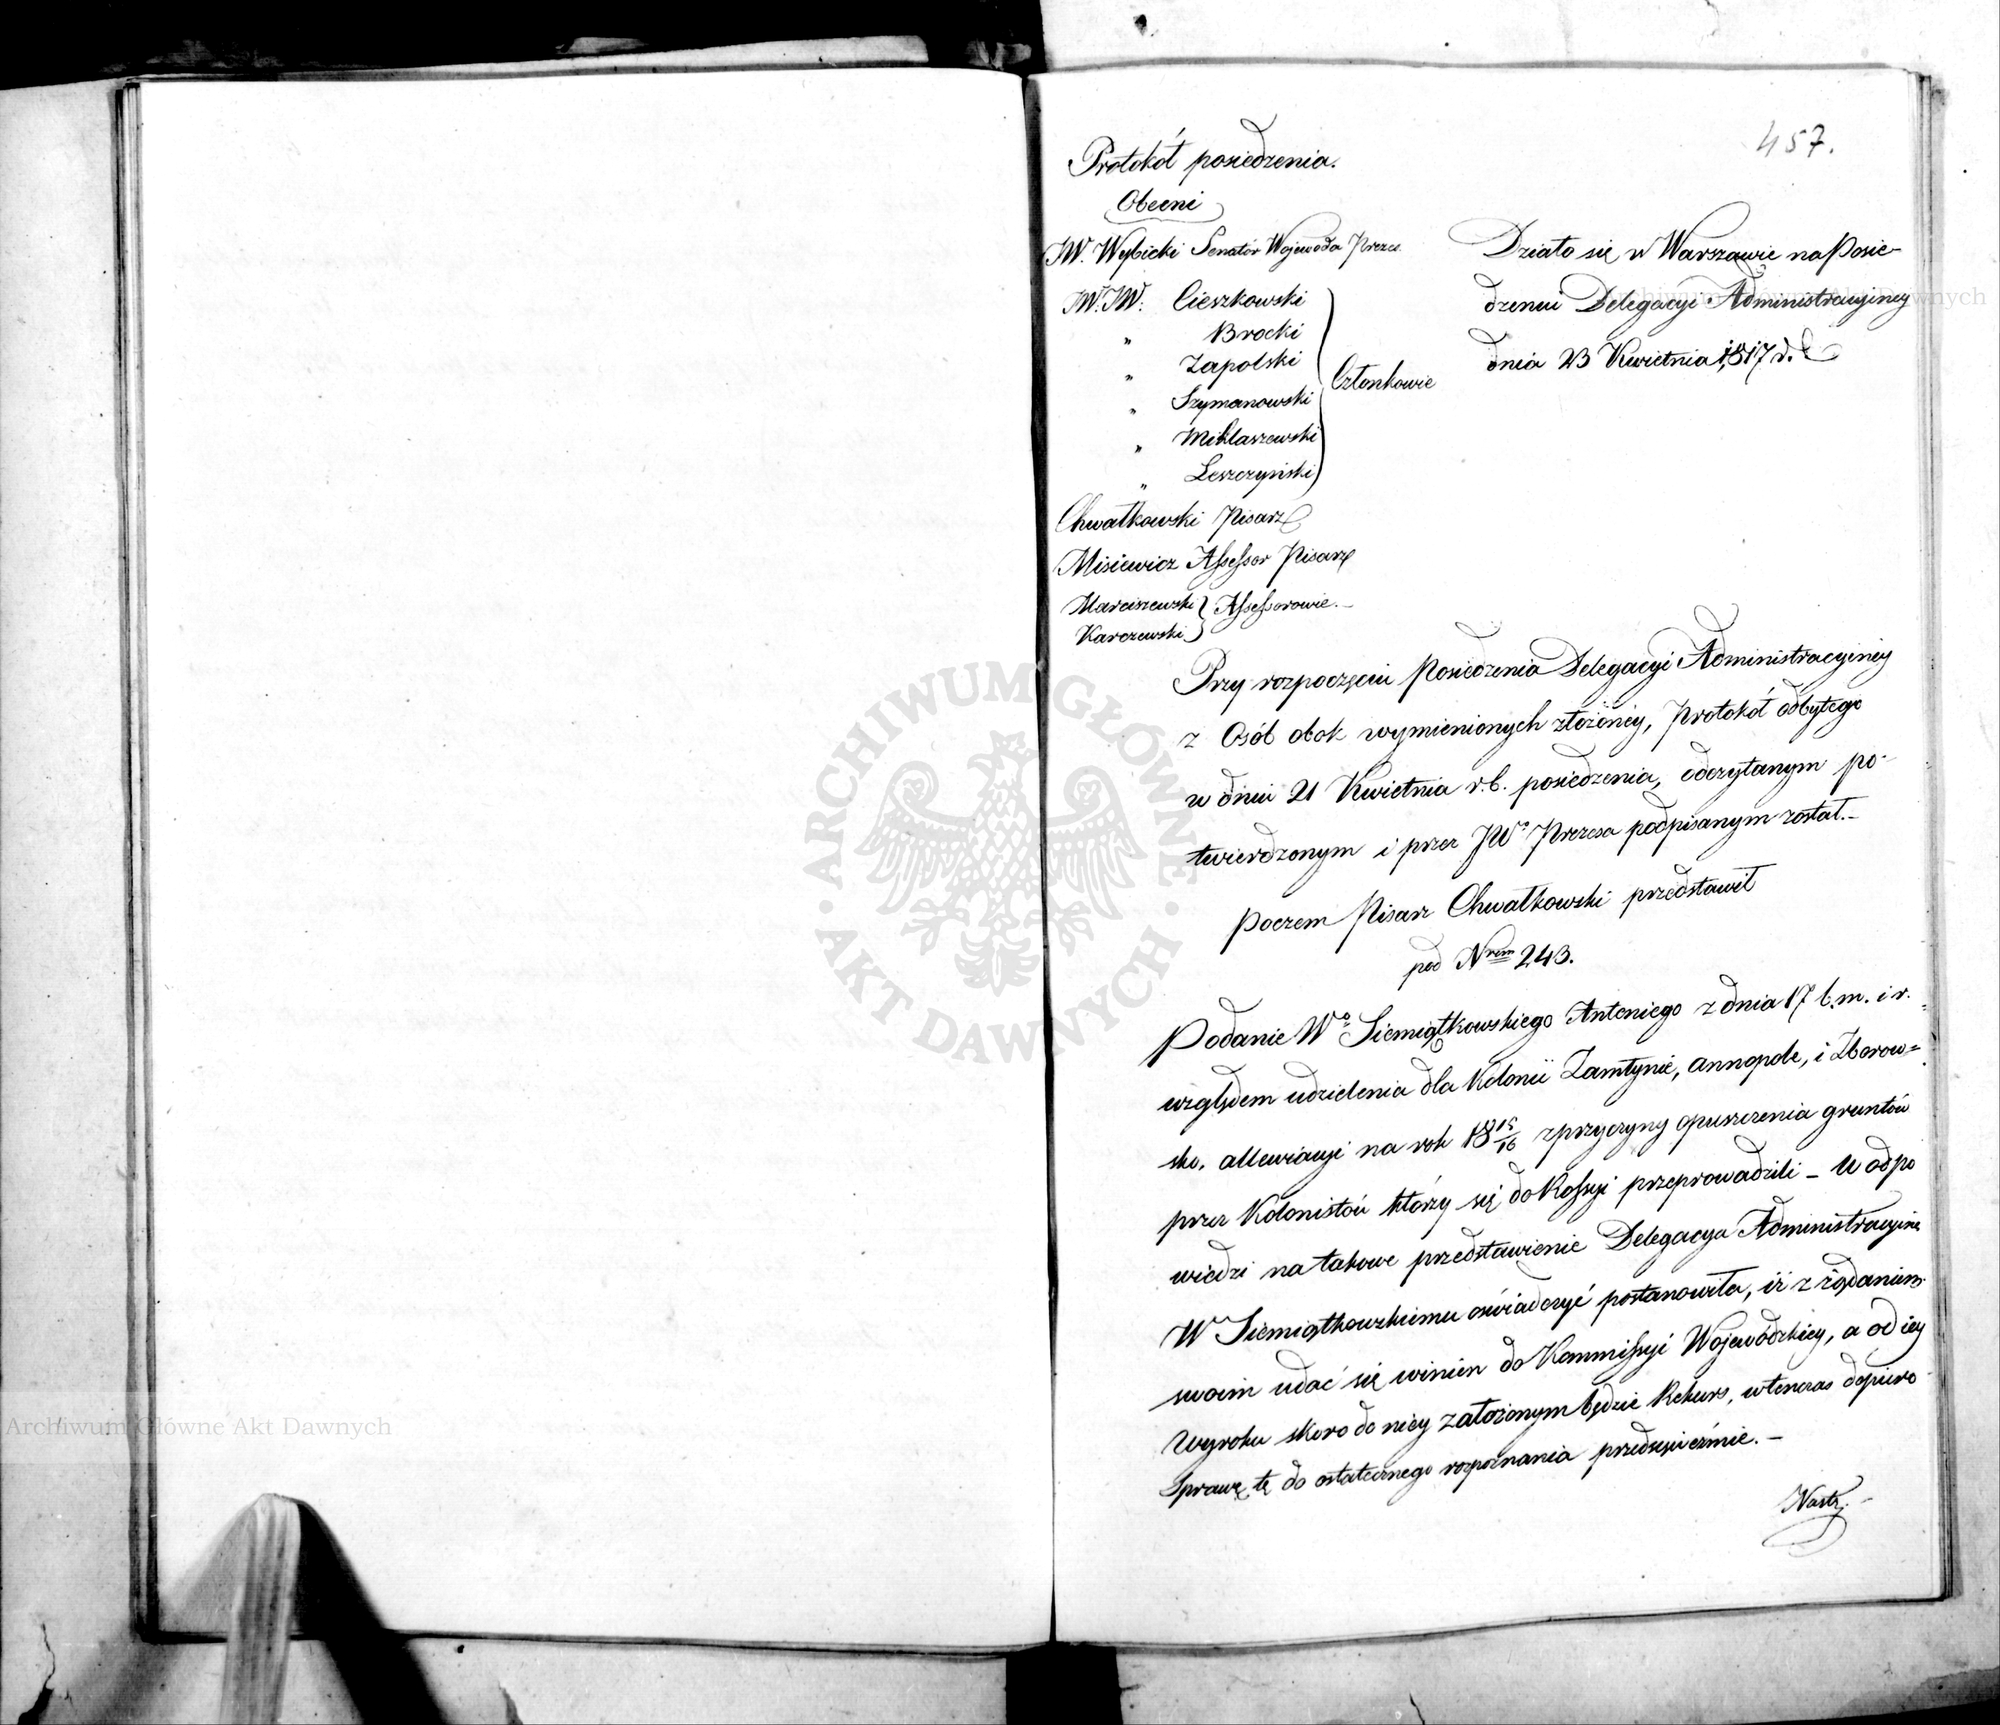 457.
Protokół posiedzenia.
Obecni
JW. Wybicki Senator Wojewoda Prezes
JW.JW. Cieszkowski
" Brocki
" Zapolski
" Szymanowski
" Miklaszewski
" Leszczyński
Członkowie
Chwałkowski Pisarz
Misiewicz Assessor Pisarz
Marciszewski
Karczewski
Assessorowie.—
Działo się w Warszawie na Posie-
dzeniu Delegacyi Administracyiney
dnia 23 Kwietnia 1817 r.
Przy rozpoczęciu Posiedzenia Delegacyi Administracyiney
z Osób obok wymienionych złożoney, Protokół odbytego
w dniu 21 Kwietnia r.b. posiedzenia, odczytanym po-
twierdzonym i przez JWo Prezesa podpisanym został.—
Poczem Pisarz Chwałkowski przedstawił
pod Nrem 243.
Podanie Wo Siemiątkowskiego Antoniego z dnia 17 b.m. i r.
względem udzielenia dla Kolonii Zamłynie, Annopole, i Zborow=
sko, allewiacyi na rok 18 15/16 z przyczyny opuszczenia gruntów
przez Kolonistów którzy się do Rossyi przeprowadzili – W odpo
wiedzi na takowe przedstawienie Delegacya Administracyina
W Siemiątkowskiemu oświadczyć postanowiła, iż z żądaniem
swoim udać się winien do Kommissyi Wojewódzkiey, a od iey
Wyroku skoro do niey założonym będzie Rekurs, wtenczas dopiero
Sprawę tę do ostatecznego rozpoznania przedsięweźmie.—
Nastę.
Archiwum Główne Akt Dawnych
Archiwum Główne Akt Dawnych
· ARCHIWUM GŁÓWNE · AKT DAWNYCH